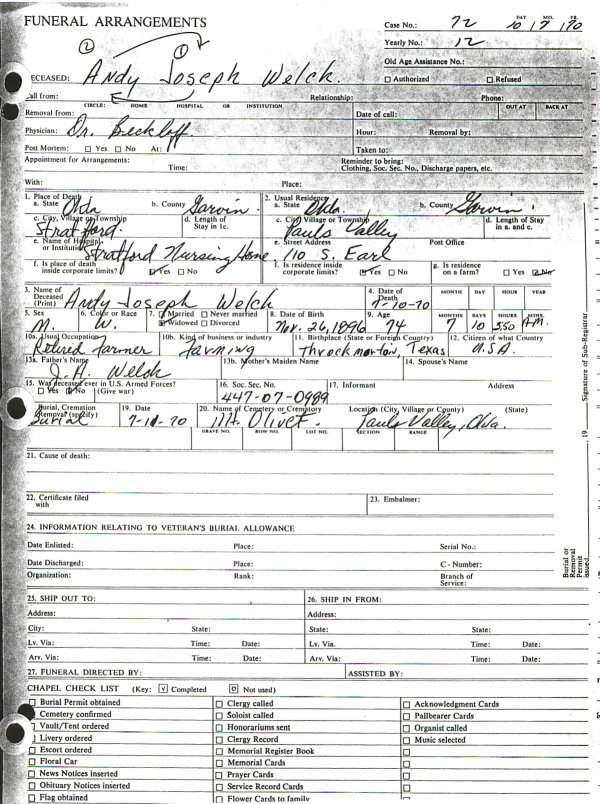 FUNERAL ARRANGEMENTS
Case No.: 72 DAY MO. YR. 10 7 70
Yearly No.: 12
② ①
Old Age Assistance No.:
ECEASED: Andy Joseph Welch. ☐ Authorized ☐ Refused
Call from: Relationship: Phone:
CIRCLE: HOME HOSPITAL OR INSTITUTION OUT AT BACK AT
Removal from: Date of call:
Physician: Dr. Beckloff. Hour: Removal by:
Post Mortem: ☐ Yes ☐ No At: Taken to:
Appointment for Arrangements: Reminder to bring:
Time: Clothing, Soc. Sec. No., Discharge papers, etc.
With: Place:
1. Place of Death 2. Usual Residence
a. State Okla b. County Garvin. a. State Okla b. County Garvin.
c. City, Village or Township d. Length of Stay in 1c. c. City Village or Township d. Length of Stay in a. and c.
Stratford. Pauls Valley
e. Name of Hospital or Institution e. Street Address Post Office
Stratford Nursing Home 110 S. Earl
f. Is place of death inside corporate limits? ☑ Yes ☐ No f. Is residence inside corporate limits? ☑ Yes ☐ No g. Is residence on a farm? ☐ Yes ☑ No
3. Name of Deceased (Print) Andy Joseph Welch 4. Date of Death 7-10-70 MONTH DAY HOURS YEAR
5. Sex M. 6. Color or Race W. 7. ☐ Married ☐ Never married ☑ Widowed ☐ Divorced 8. Date of Birth Nov. 26, 1896 9. Age 74 MONTHS 7 DAYS 10 HOURS 550 MINS. A.M.
10a. Usual Occupation 10b. Kind of business or industry 11. Birthplace (State or Foreign Country) 12. Citizen of what Country
Retired Farmer Farming Throckmorton, Texas U.S.A.
13a. Father's Name 13b. Mother's Maiden Name 14. Spouse's Name
J. H. Welch
15. Was deceased ever in U.S. Armed Forces? ☐ Yes ☑ No (Give war) 16. Soc. Sec. No. 17. Informant Address
447-07-0989
Burial, Cremation Removal (specify) 19. Date 20. Name of Cemetery or Crematory Location (City, Village or County) (State)
Burial Mt. Olivet. Pauls Valley, Okla.
GRAVE NO. ROW NO. LOT NO. SECTION RANGE
21. Cause of death:
22. Certificate filed with 23. Embalmer:
24. INFORMATION RELATING TO VETERAN'S BURIAL ALLOWANCE
Date Enlisted: Place: Serial No.:
Date Discharged: Place: C - Number:
Organization: Rank: Branch of Service:
25. SHIP OUT TO: 26. SHIP IN FROM:
Address: Address:
City: State: State: State:
Lv. Via: Time: Date: Lv. Via: Time: Date:
Arv. Via: Time: Date: Arv. Via: Time: Date:
27. FUNERAL DIRECTED BY: ASSISTED BY:
CHAPEL CHECK LIST (Key: ☑ Completed Not used)
☐ Burial Permit obtained ☐ Clergy called ☐ Acknowledgment Cards
Cemetery confirmed ☐ Soloist called ☐ Pallbearer Cards
☐ Vault/Tent ordered ☐ Honorariums sent ☐ Organist called
Livery ordered ☐ Clergy Record ☐ Music selected
☐ Escort ordered ☐ Memorial Register Book ☐
☐ Floral Car ☐ Memorial Cards ☐
☐ News Notices inserted ☐ Prayer Cards ☐
☐ Obituary Notices inserted ☐ Service Record Cards ☐
☐ Flag obtained ☐ Flower Cards to family ☐
Signature of Sub-Registrar
19
Burial or Removal Permit issued